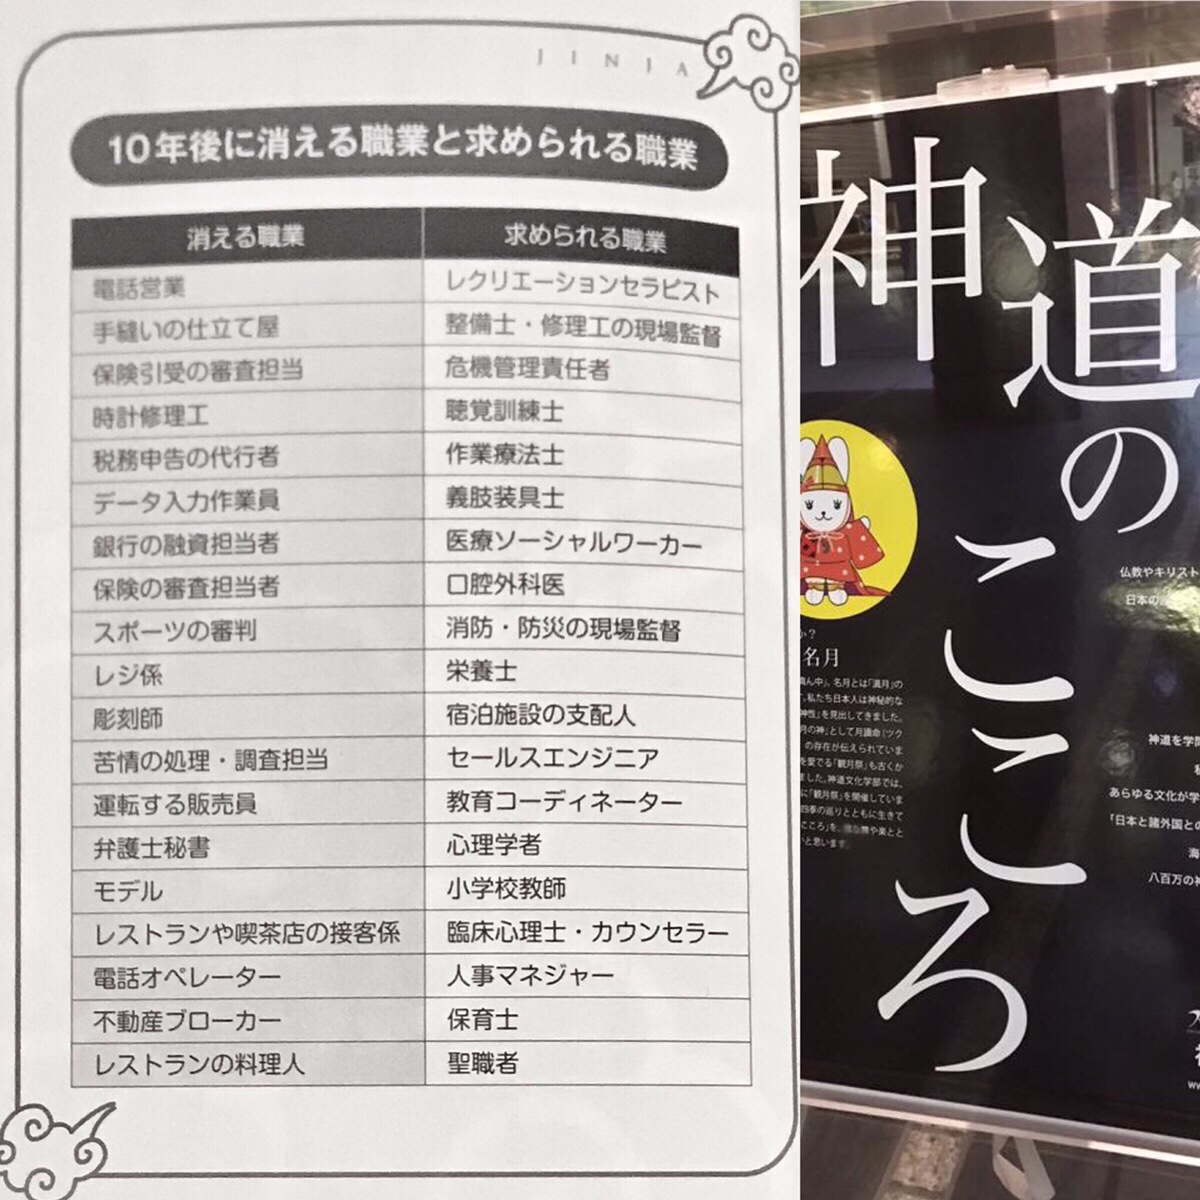 JINJA
10年後に消える職業と求められる職業
消える職業 求められる職業
電話営業 レクリエーションセラピスト
手縫いの仕立て屋 整備士・修理工の現場監督
保険引受の審査担当 危機管理責任者
時計修理工 聴覚訓練士
税務申告の代行者 作業療法士
データ入力作業員 義肢装具士
銀行の融資担当者 医療ソーシャルワーカー
保険の審査担当者 口腔外科医
スポーツの審判 消防・防災の現場監督
レジ係 栄養士
彫刻師 宿泊施設の支配人
苦情の処理・調査担当 セールスエンジニア
運転する販売員 教育コーディネーター
弁護士秘書 心理学者
モデル 小学校教師
レストランや喫茶店の接客係 臨床心理士・カウンセラー
電話オペレーター 人事マネジャー
不動産ブローカー 保育士
レストランの料理人 聖職者
神道のこころ
仏教やキリスト
日本の
か?
名月
真ん中」、名月とは「満月」の
す。私たち日本人は神秘的な
神性」を見出してきました。
月の神」として月読命(ツク
の存在が伝えられていま
を愛でる「観月祭」も古くか
ました。神道文化学部では、
に「観月祭」を開催していま
四季の巡りとともに生きて
こころ」を、舞や楽とと
いと思います。
神道を学問
あらゆる文化が学
「日本と諸外国との
海
八百万の神